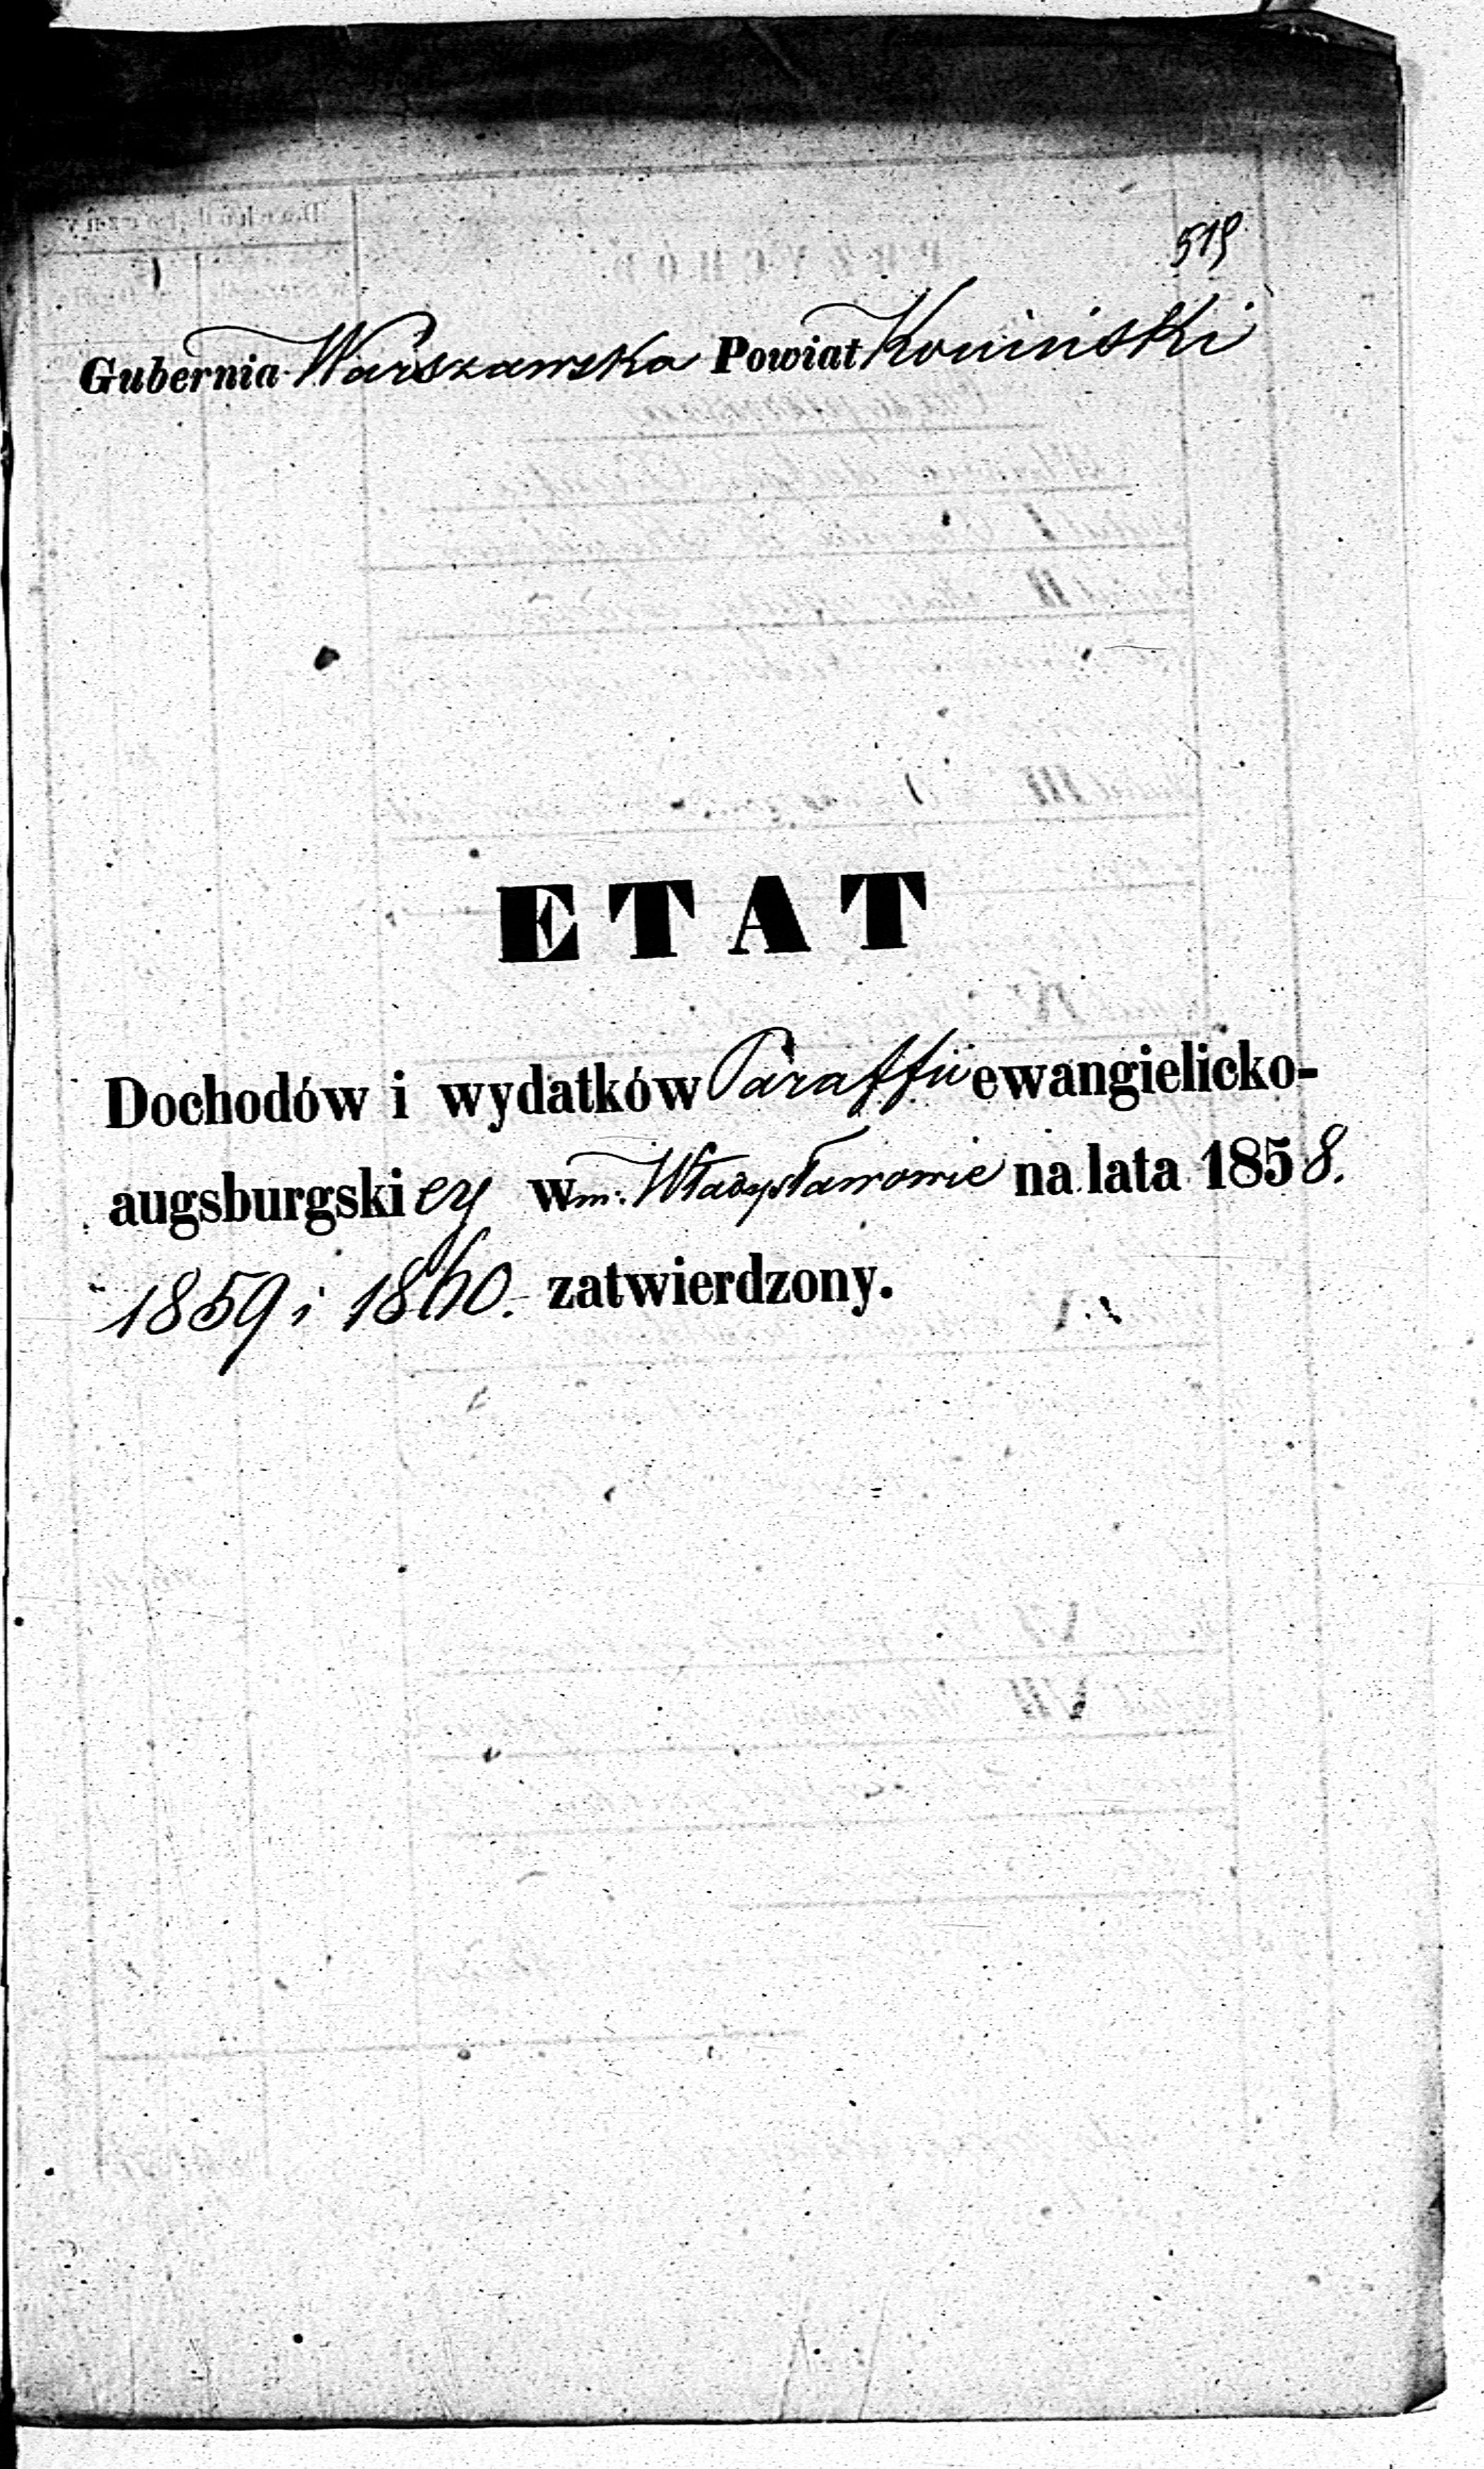 519
Gubernia Warszawska Powiat Koniński
ETAT
Dochodów i wydatków Paraffii ewangielicko-
augsburgskiey w m. Władysławowie na lata 1858.
1859 i 1860. zatwierdzony.